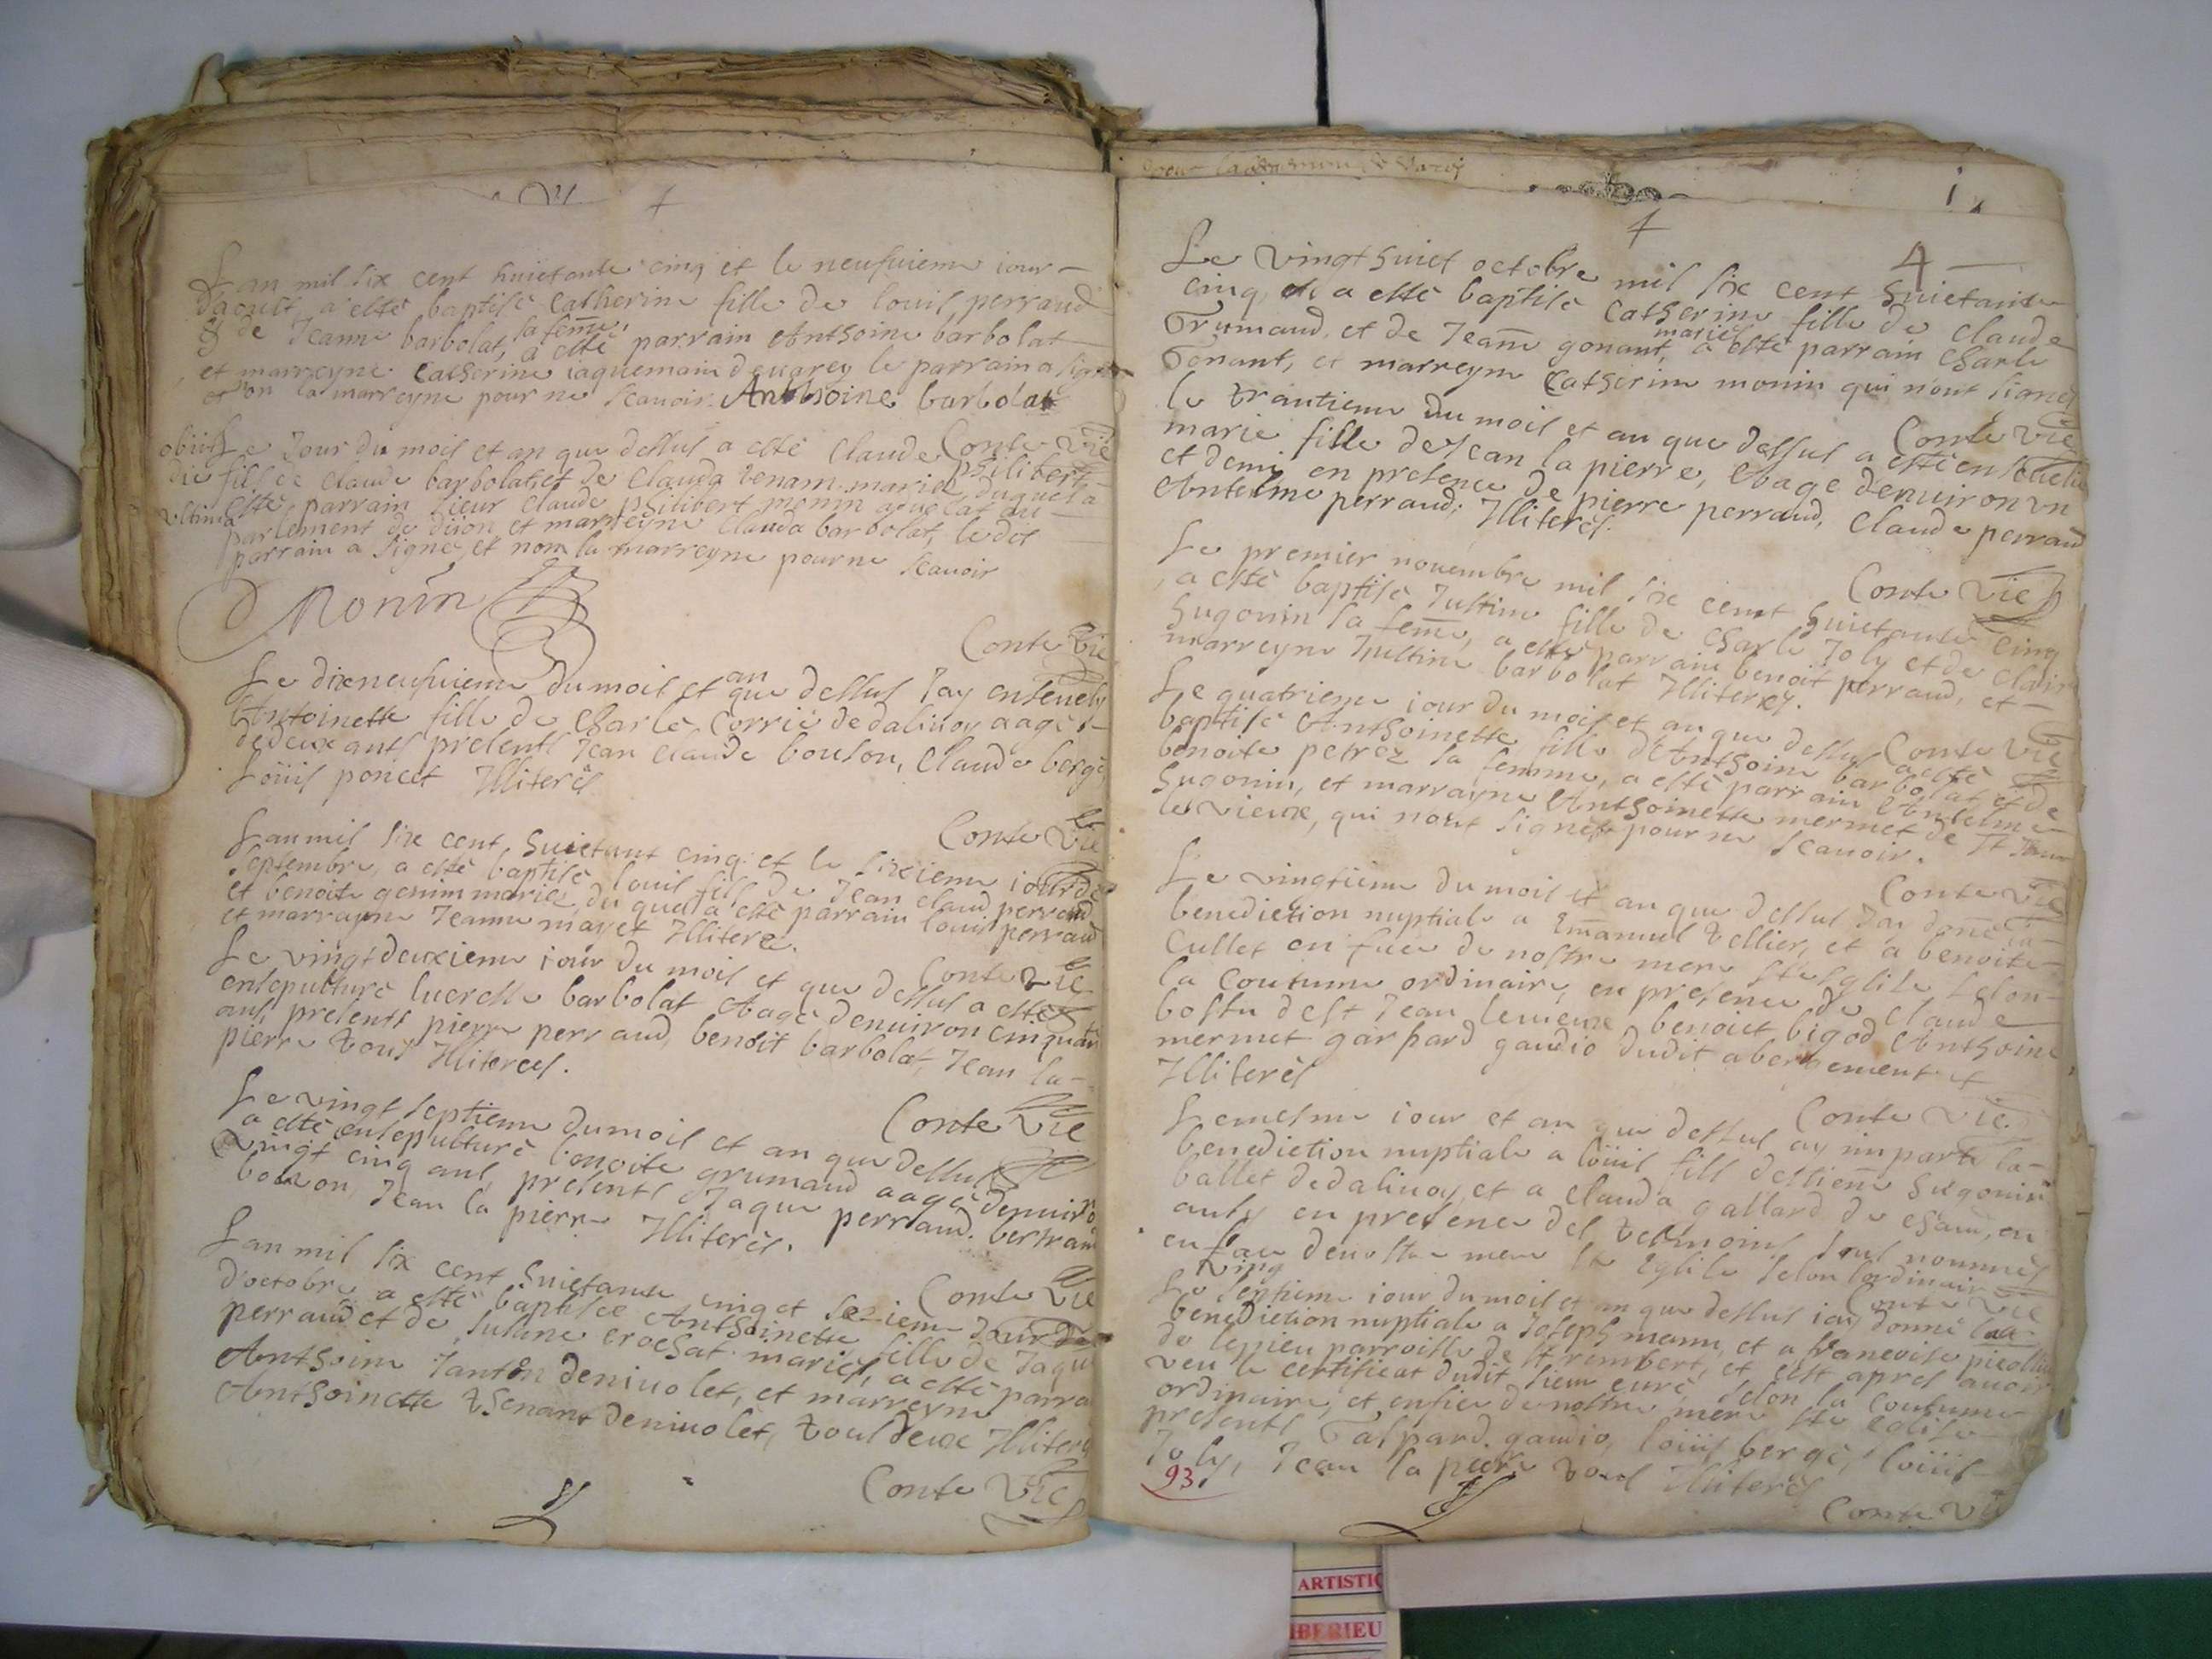 L'an mil six cent huictante cinq et le neufuieme iour
daoust, a esté baptisé Catherine fille de louis perraud
& de Jeanne barbolat, sa feme, a esté parrain Anthoine barbolat
et marreyne Catherine iaquemain le parrain a signé
et non la marreyne pour ne scauoir. Anthoine barbolat
Conte Vic
obiit die ultima
Le Jour du mois et an que dessus a esté Claude philibert
fils de Claude barbolat et de Clauda tenam mariez duquel a
esté parrain sieur Claude philibert monin aduocat au
parlement de dijon et marreyne Clauda barbolat, ledit
parrain a signé, et non la marreyne pour ne scauoir
Monin
Conte Vic
Le dixneufuieme du mois et an que dessus Jay enseuely
Antoinette fille de Charle Corrië de daliuoy aagé
de deux ants presents Jean Claude bouson, Claude bergé
Loüis poncet Illiterés
Conte Vic
Lan mil six cent huictant cinq et le sixieme iour de
septembre, a esté baptisé louis fils de Jean claud perraud
et benoite genin mariez, du quel a esté parrain louis perraud
et marrayne Jeanne maret Illiteré.
Conte Vic
Le vingtdeuxieme iour du mois et que dessus a esté
ensepulturé lucresse barbolat Aagé denuiron cinquante
ans, presents pierre perraud, benoit barbolat, Jean la
pierre tous Illiterees.
Conte Vic
Le vingt septieme du mois et an que dessus
a esté ensepulturé benoite grumaud aagé denuiron
vingt cinq ans, presents Jaque perraud. bertrand
bouson, Jean la pierre Illiterés.
Conte Vic
Lan mil six cent huictante cinq et seziem Jour
doctobre a esté baptisee Anthoinette fille de Jaque
perraud et de susane crochat mariés, a esté parra
Anthoine Janton deniuolet, et marreyne
Anthoinette thenant deniuolet, tous deux Illiteres
Conte Vic
4
Le vingt huict octobre mil six cent huictante
cinq, a esté baptisé Catherine fille de Claude
Grumaud, et de Jeane gonant, mariés a esté parrain Charle
Gonant, et marreyne Catherine monin qui n'ont signés
Conte Vic
le trantieme du mois et an que dessus a esté enseuelie
marie fille de Jean la pierre, Aage denuiron un
et demi en presence de pierre perraud, Claude perraud
Antelme perraud, Illiterés.
Conte Vic
Le premier nouembre mil six cent huictante cinq
a esté baptisé Justine fille de Charle Joly et de Claire
hugonin sa feme, a esté parrain benoit perraud, et
marreyne Justine barbolat Illiterez.
Conte Vic
Le quatrieme iour du mois et an que dessus a esté
baptisé Anthoinette fille d'Anthoine barbolat et de
benoite petrez sa femme, a esté parrain Antelme
hugonin, et marrayne Anthoinette mermet de St Jean
le vieux, qui nont signés pour ne scauoir.
Conte Vic
Le vingtieme du mois et an que dessus Jay doné la
benediction nuptiale a Emanuel tellier, et a benoite
Cullet en face de nostre mere ste eglise selon
la Coutume ordinaire, en presence de Claude
bostu de st Jean levieux, benoict bigod Anthoine
mermet garpard gaudio dudit abergement
Illiterés
Conte Vic.
Lemesme iour et an que dessus ay imparti la
benediction nuptiale a loüis fils destiene hugonin
ballet de daliuoy, et a clauda gallard de en
aussy en presence des tesmoins sous nommés
en face denostre mere ste Eglise selon lordinaire
Conte Vic
Le vingt septieme iour du mois et an que dessus iay donné la
benediction nuptiale a Joseph et a francoise
de parroisse de St rambert, et est apres auoir
veu le certificat dudit sieur curé, selon la coutume
ordinaire, et enface de nostre mere ste eglise
presents Gaspard. gaudio, loüis bergé, loüis
Joly, Jean la pierre tous Illiterés
Conte Vic
93
ARTISTIC
IBERIEU